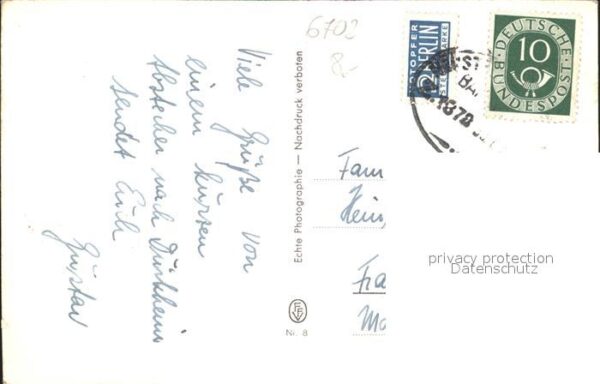 6702
8.-
Viele Grüße von
einem kurzen
Abstecher nach Dürkheim
sendet Euch
Gustav
Echte Photographie — Nachdruck verboten
Nr. 8
NOTOPFER
2 BERLIN
STEUERMARKE
DEUTSCHE
10
BUNDESPOST
Fam
Hein
Fra
privacy protection
Datenschutz